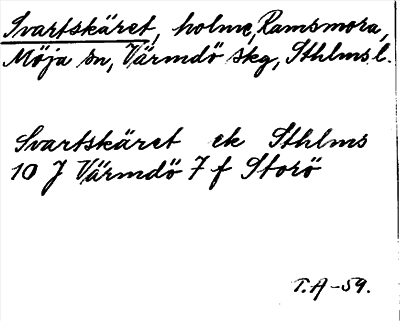 Svartskäret, holme, Ramsmora,
Möja sn, Värmdö skg, Sthlms l.
Svartskäret ek Sthlms
10 J Värmdö 7 f Storö
T.A-59.